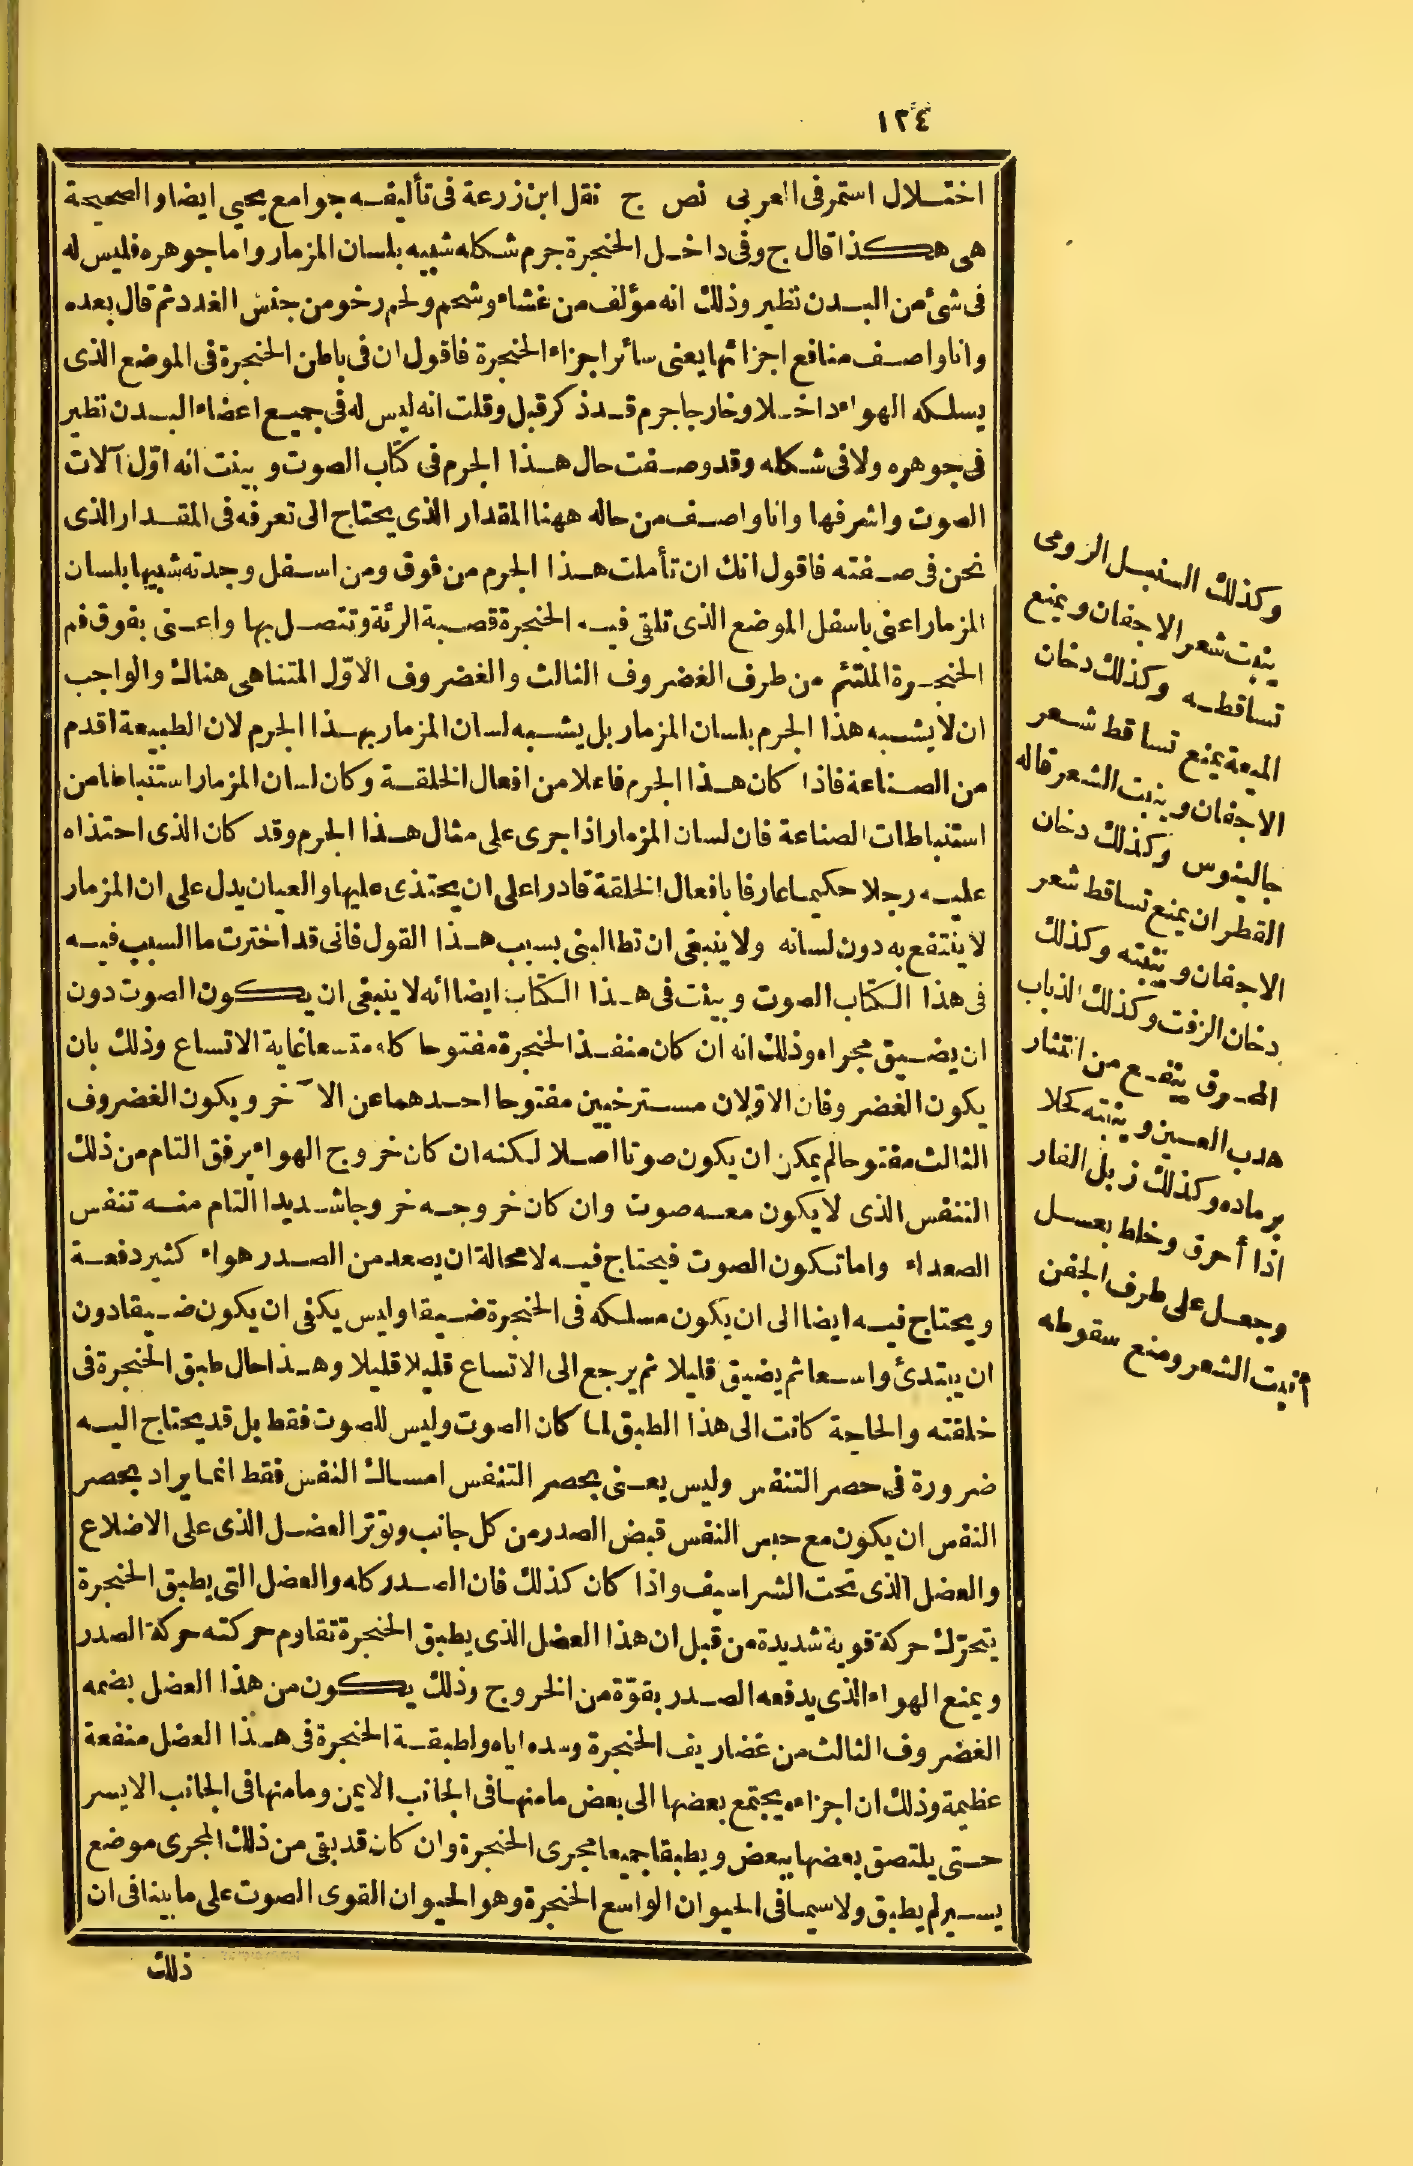 ١٢٤
اختلال استمر فى العربى نص ج نقل ابن زرعة فى تأليفه جوامع يحيى ايضا والصحيحة
هى هكذا قال ج وفى داخل الحنجرة جرم شكله شبيه بلسان المزمار واما جوهره فليس له
فى شئ من البدن نظير وذلك انه مؤلف من غشاء وشحم ولحم رخو من جنس الغدد ثم قال بعده
وانا واصف منافع اجزائها يعنى سائر اجزاء الحنجرة فاقول ان فى باطن الحنجرة فى الموضع الذى
يسلكه الهواء داخلا وخارجا جرم قد ذكر قبل وقلت انه ليس له فى جميع اعضاء البدن نظير
فى جوهره ولا فى شكله وقد وصفت حال هذا الجرم فى كتاب الصوت وبينت انه اوّل آلات
الصوت واشرفها وانا واصف من حاله ههنا المقدار الذى يحتاج الى تعرفه فى المقدار الذى
نحن فى صفته فاقول انك ان تأملت هذا الجرم من فوق ومن اسفل وجدته شبيها بلسان
المزمار اعنى باسفل الموضع الذى تلقى فيه الحنجرة قصبة الرئة وتتصل بها واعنى بفوق فم
الحنجرة الملتئم من طرف الغضروف الثالث والغضروف الاوّل المتناهى هناك والواجب
ان لا يشبه هذا الجرم بلسان المزمار بل يشبه لسان المزمار بهذا الجرم لان الطبيعة اقدم
من الصناعة فاذا كان هذا الجرم فاعلا من افعال الخلقة وكان لسان المزمار استنباطا من
استنباطات الصناعة فان لسان المزمار اذا جرى على مثال هذا الجرم وقد كان الذى احتذاه
عليه رجلا حكيما عارفا بافعال الخلقة قادرا على ان يحتذى عليها والعيان يدل على ان المزمار
لا ينتفع به دون لسانه ولا ينبغى ان تطالبنى بسبب هذا القول فانى قد اخترت ما السبب فيه
فى هذا الكتاب الصوت وبينت فى هذا الكتاب ايضا انه لا ينبغى ان يكون الصوت دون
ان يضيق مجراه وذلك انه ان كان منفذ الحنجرة مفتوحا كله متسعا غاية الاتساع وذلك بان
يكون الغضروفان الاوّلان مسترخيين مفتوحا احدهما عن الآخر ويكون الغضروف
الثالث مفتوحا لم يمكن ان يكون صوتا اصلا لكنه ان كان خروج الهواء برفق التام من ذلك
التنفس الذى لا يكون معه صوت وان كان خروجه خروجا شديدا التام منه تنفس
الصعداء واما تكون الصوت فيحتاج فيه لا محالة ان يصعد من الصدر هواء كثير دفعة
ويحتاج فيه ايضا الى ان يكون مسلكه فى الحنجرة ضيقا وليس يكفى ان يكون ضيقا دون
ان يبتدئ واسعا ثم يضيق قليلا ثم يرجع الى الاتساع قليلا قليلا وهذا حال طبق الحنجرة فى
خلقته والحاجة كانت الى هذا الطبق لما كان الصوت وليس للصوت فقط بل قد يحتاج اليه
ضرورة فى حصر التنفس وليس يعنى بحصر التنفس امساك النفس فقط انما يراد بحصر
النفس ان يكون مع حبس النفس قبض الصدر من كل جانب وتوتر العضل الذى على الاضلاع
والعضل الذى تحت الشراسيف واذا كان كذلك فان الصدر كله والعضل التى يطبق الحنجرة
يتحرّك حركة قوية شديدة من قبل ان هذا العضل الذى يطبق الحنجرة تقاوم حركته حركة الصدر
ويمنع الهواء الذى يدفعه الصدر بقوّة من الخروج وذلك يكون من هذا العضل بضمه
الغضروف الثالث من غضاريف الحنجرة وسده اياه واطبقة الحنجرة فى هذا العضل منفعة
عظيمة وذلك ان اجزاءه يجتمع بعضها الى بعض ما منها فى الجانب الايمن وما منها فى الجانب الايسر
حتى يلتصق بعضها ببعض ويطبقا جميعا مجرى الحنجرة وان كان قد بقى من ذلك المجرى موضع
يسير لم يطبق ولا سيما فى الحيوان الواسع الحنجرة وهو الحيوان القوى الصوت على ما بينا فى ان
ذلك
وكذلك السنبل الرومى
ينبت شعر الاجفان ويمنع
تساقطه وكذلك دخان
الميعة يمنع تساقط شعر
الاجفان وينبت الشعر قاله
جالينوس وكذلك دخان
القطران يمنع تساقط شعر
الاجفان وينبته وكذلك
دخان الزفت وكذلك الذباب
المحروق ينفع من انتثار
هدب العين وينبته كحلا
برماده وكذلك زبل الفار
اذا أحرق وخلط بعسل
وجعل على طرف الجفن
أنبت الشعر ومنع سقوطه